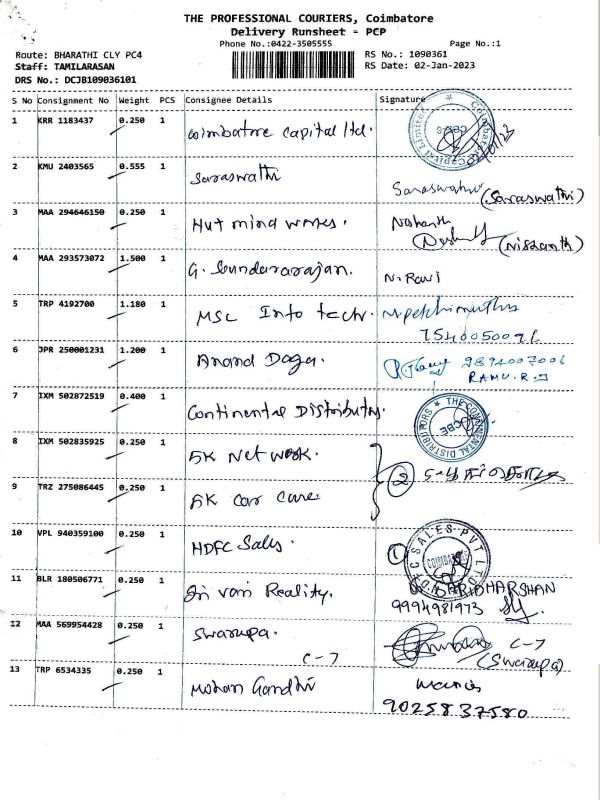 THE PROFESSIONAL COURIERS, Coimbatore
Delivery Runsheet - PCP
Phone No.:0422-3505555
Page No.:1
Route: BHARATHI CLY PC4
RS No.: 1090361
Staff: TAMILARASAN
RS Date: 02-Jan-2023
DRS No.: DCJB109036101
S No Consignment No Weight PCS Consignee Details Signature
1 KRR 1183437 0.250 1 Coimbatore Capital ltd.
2 KMU 2403565 0.555 1 Saraswathi Saraswathi (Saraswathi)
3 MAA 294646150 0.250 1 Hut mind works. Nishanth
(Nishanth)
4 MAA 293573072 1.500 1 G. Soundararajan. N. Ravi
5 TRP 4192700 1.180 1 MSC Info tech.
6 JPR 250001231 1.200 1 Anand Daga. 9894007006
RAMU.R.
7 IXM 502872519 0.400 1 Continental Distributors. THE CONTINENTAL DISTRIBUTORS CBE
8 IXM 502835925 0.250 1 5K Network. 2
9 TRZ 275086445 0.250 1 5K Car Care.
10 VPL 940359100 0.250 1 HDFC Sales. 1
11 BLR 180506771 0.250 1 Sri Vari Reality. HARIDHARSHAN
9994981973
12 MAA 569954428 0.250 1 Swarupa. C-7
C-7 (Swarupa)
13 TRP 6534335 0.250 1 Mohan Gandhi
9025837580